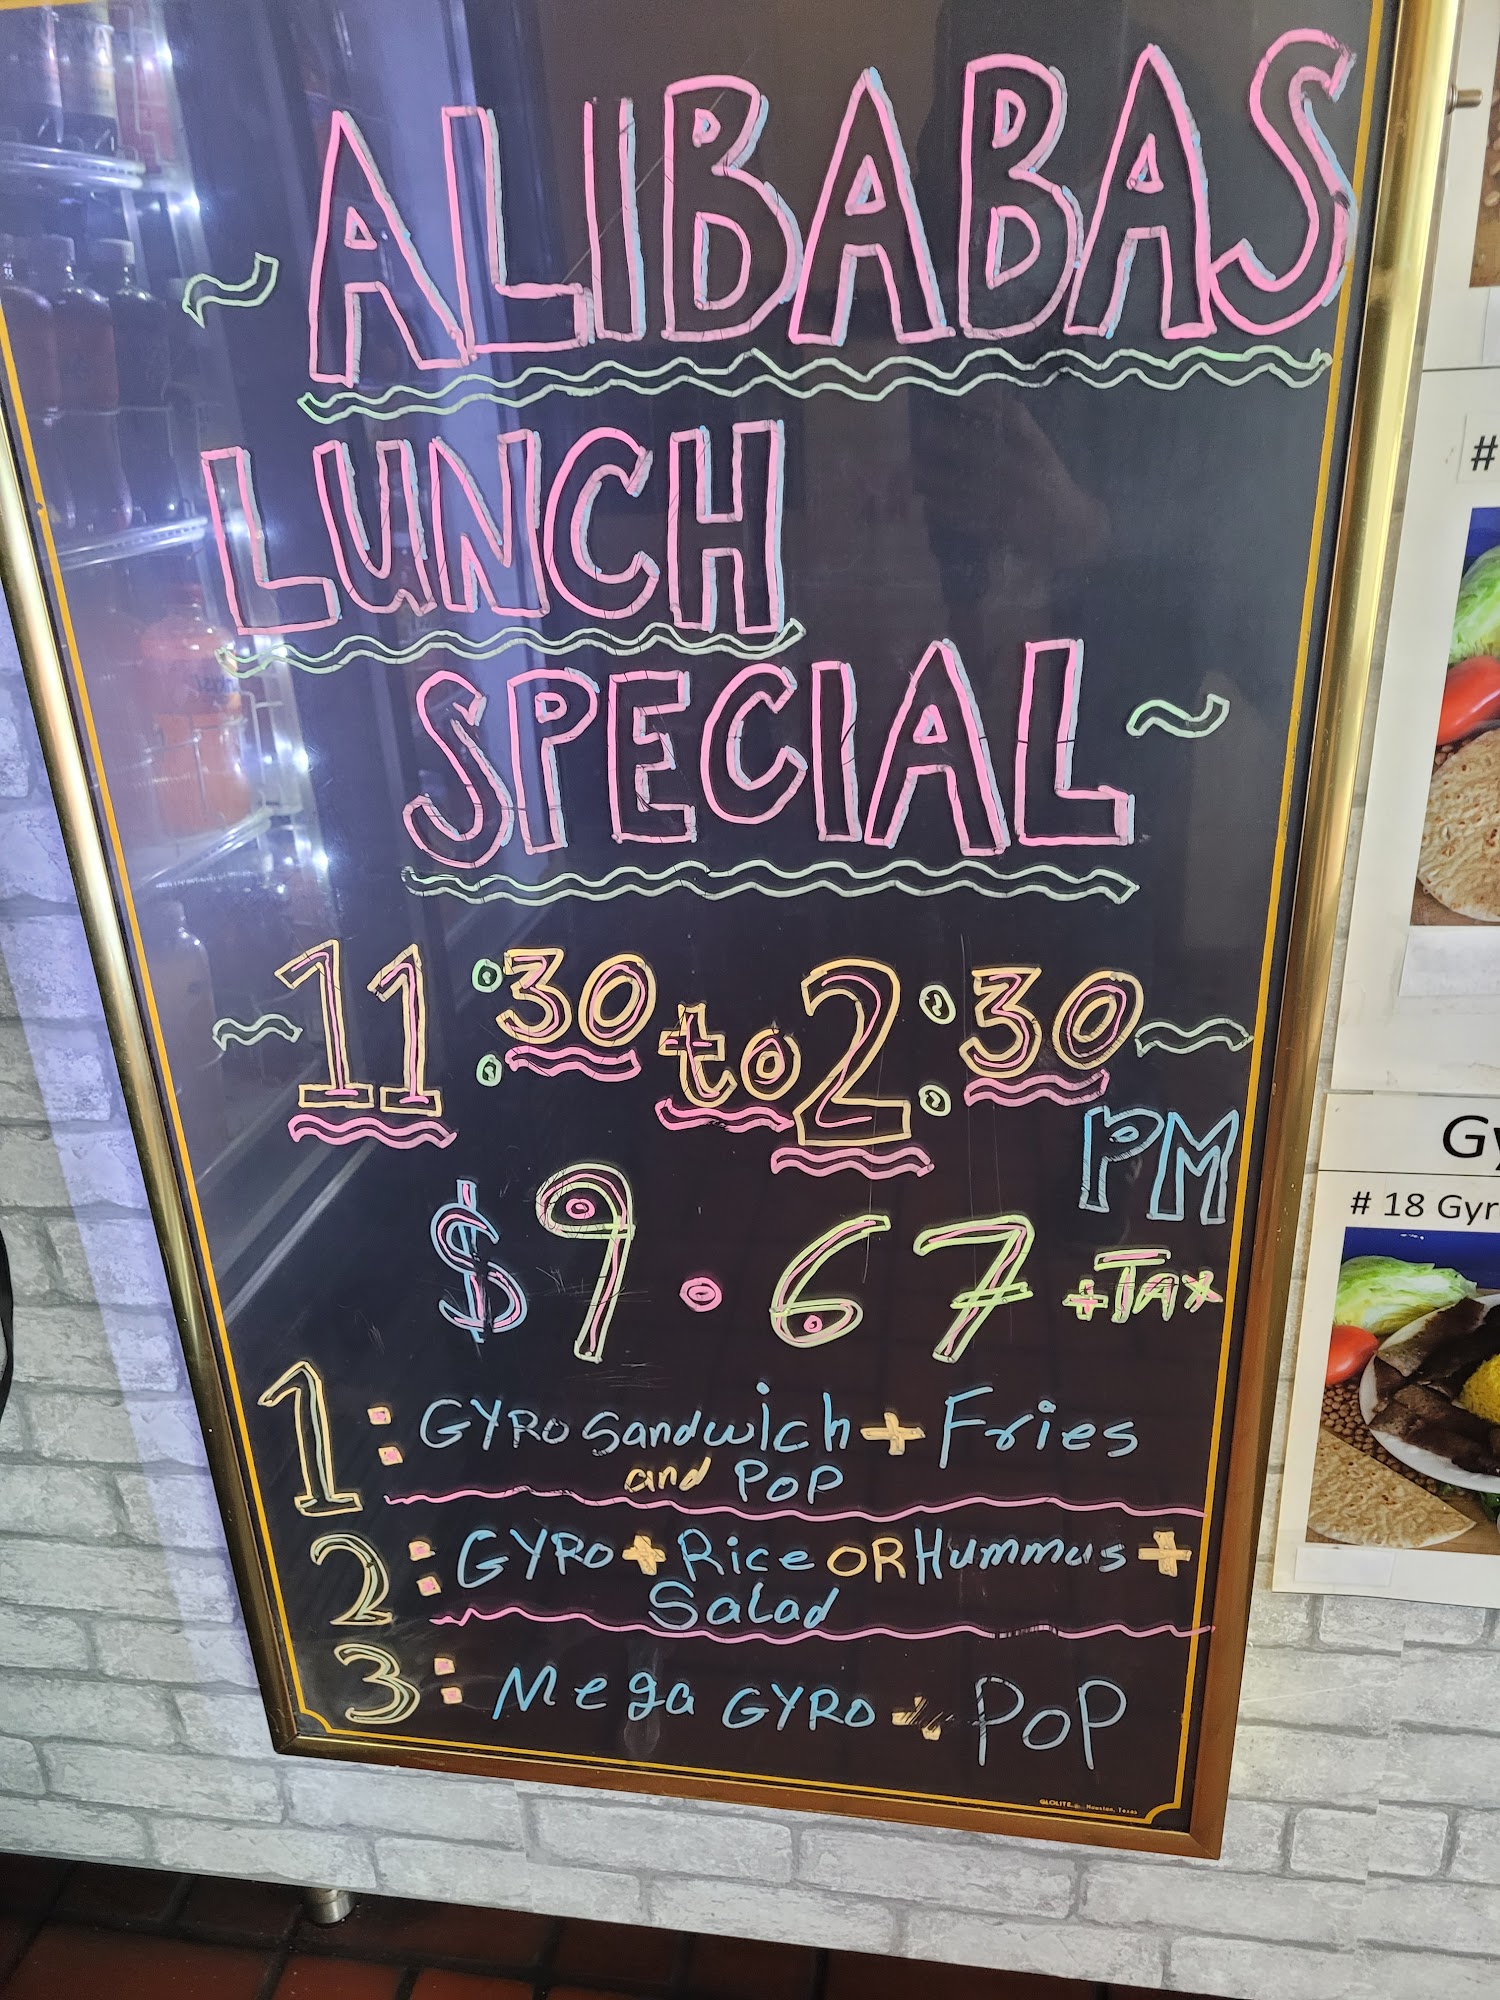 ~ ALIBABAS
LUNCH
SPECIAL ~
~ 11:30 to 2:30 ~
PM
$9.67 +Tax
1: GYRO Sandwich + Fries
and POP
2: GYRO + Rice OR Hummus +
Salad
3: Mega GYRO + POP
GLOLITE Houston, Texas
#
Gy
# 18 Gyr